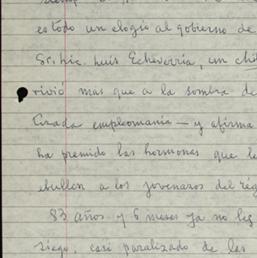 es todo un elogio al gobierno de
Sr. Lic. Luis Echeverría, un
vivió mas que a la sombra de
Cisada empleomanía — y afirma
ha premido las hormonas que le
ebullen a los jovenazos del
83 años y 6 meses ya no
ciego, casi paralizado de las